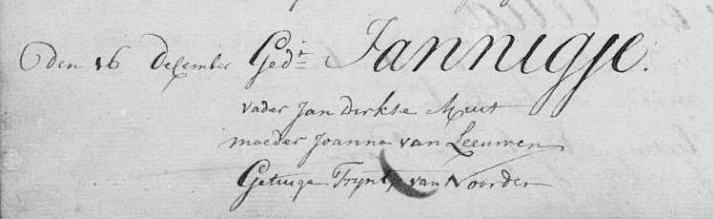 den 16 December Gedt Jannigje.
vader Jan Dirkse Muit
moeder Joanna van Leeuwen
Getuige Tryntje van Noorden